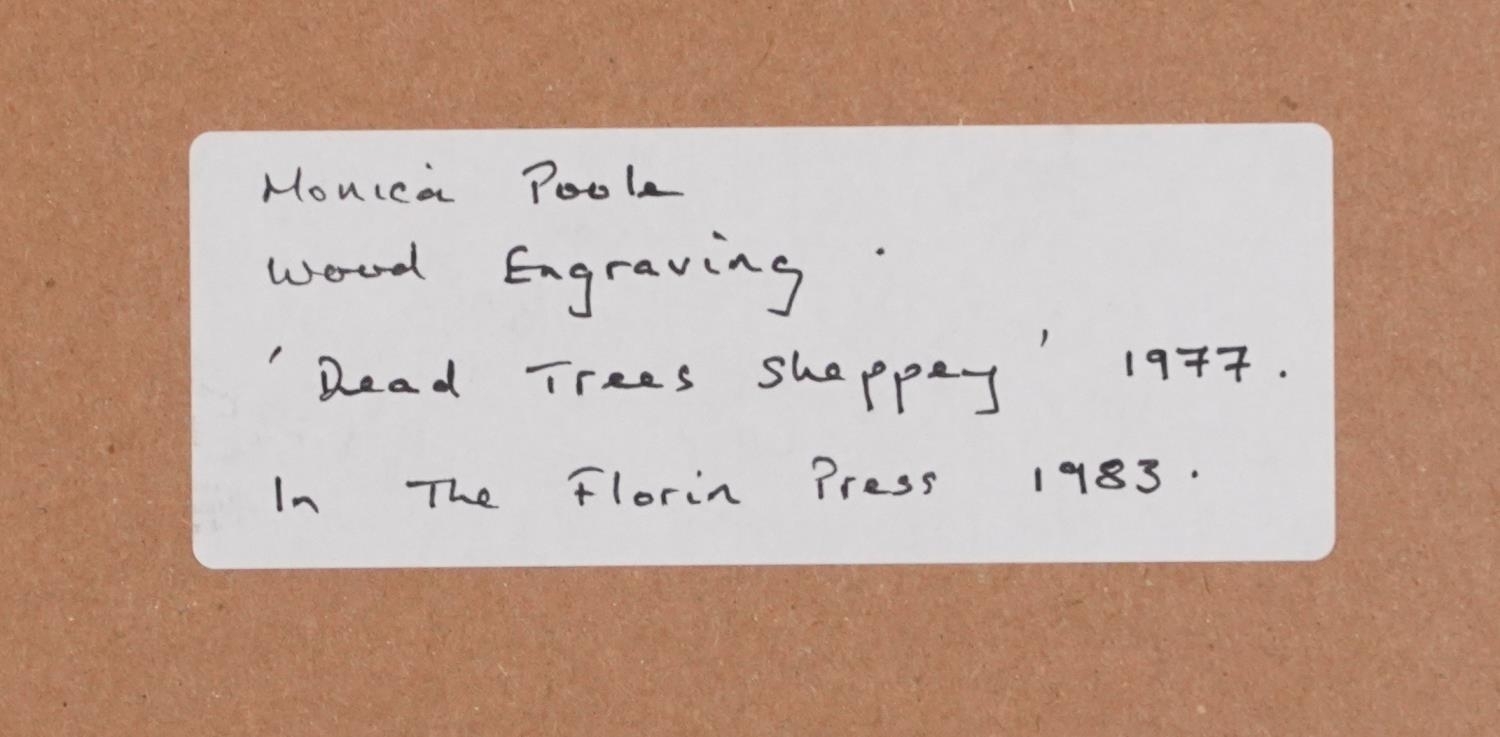 Monica Poole
Wood Engraving .
'Dead Trees Sheppey' 1977.
In The Florin Press 1983.